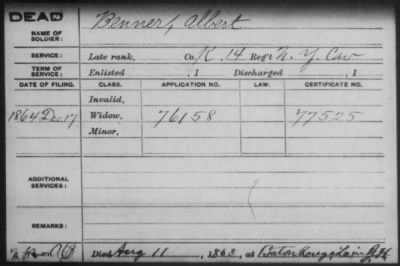 DEAD
NAME OF SOLDIER: Benner, Albert
SERVICE: Late rank, Co. K. 14 Reg't N.Y. Cav
TERM OF SERVICE: Enlisted , 1 Discharged , 1
DATE OF FILING. CLASS. APPLICATION NO. LAW. CERTIFICATE NO.
Invalid,
1864 Dec 17 Widow, 76158 77525
Minor,
ADDITIONAL SERVICES:
REMARKS:
Died Aug 11, 1863, at Baton Rouge